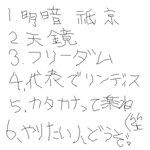 1,明暗 祇京
2,天鏡
3,フリーダム
4,代表でリンディス
5,カタカナって楽ね
6,やりたい人どうぞ(笑